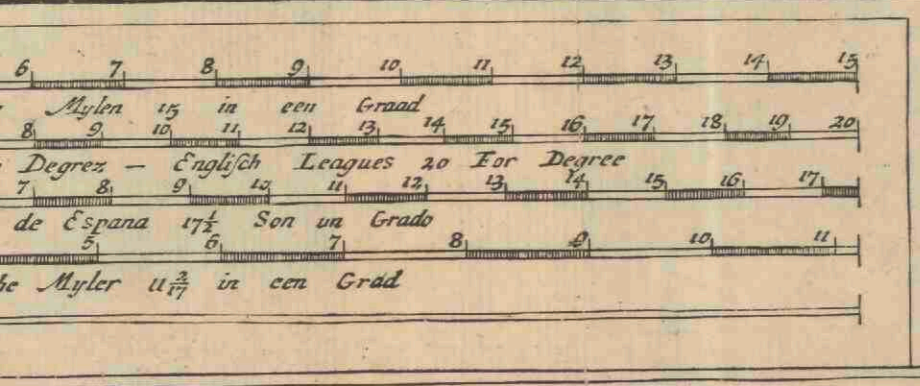 6 7 8 9 10 11 12 13 14 15
Mylen 15 in een Graad
8 9 10 11 12 13 14 15 16 17 18 19 20
Degrez — Englisch Leagues 20 For Degree
7 8 9 10 11 12 13 14 15 16 17
de Espana 17½ Son un Grado
5 6 7 8 9 10 11
Myler 11 2/17 in een Grad